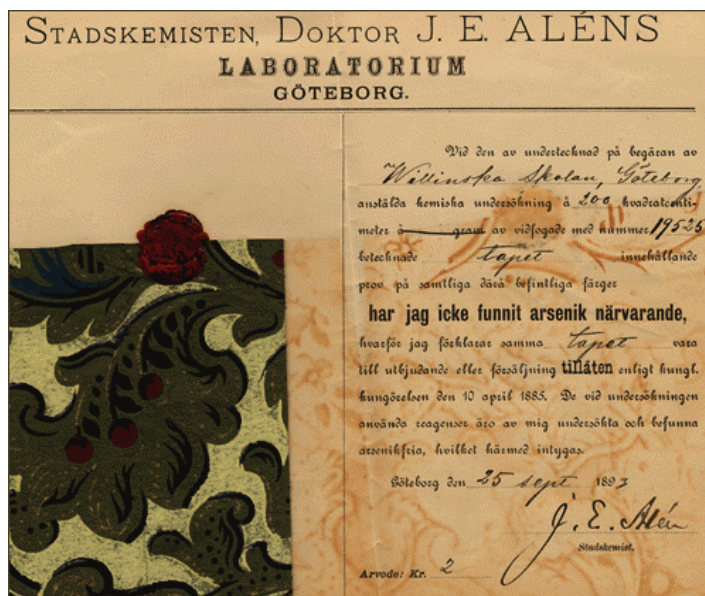 STADSKEMISTEN, DOKTOR J. E. ALÉNS
LABORATORIUM
GÖTEBORG.
Vid den av undertecknad på begäran av
Willinska Skolan, Göteborg
anstälda kemiska undersökning å 200 kvadratcenti-
meter å gram av vidfogade med nummer 19525
betecknade tapet innehållande
prov på samtliga därå befintliga färger
har jag icke funnit arsenik närvarande,
hvarför jag förklarar samma tapet vara
till utbjudande eller försäljning tillåten enligt kungl.
kungörelsen den 10 april 1885. De vid undersökningen
använda reagenser äro av mig undersökta och befunna
arsenikfria, hvilket härmed intygas.
Göteborg den 25 sept 1893
J. E. Alén
Stadskemist.
Arvode: Kr. 2